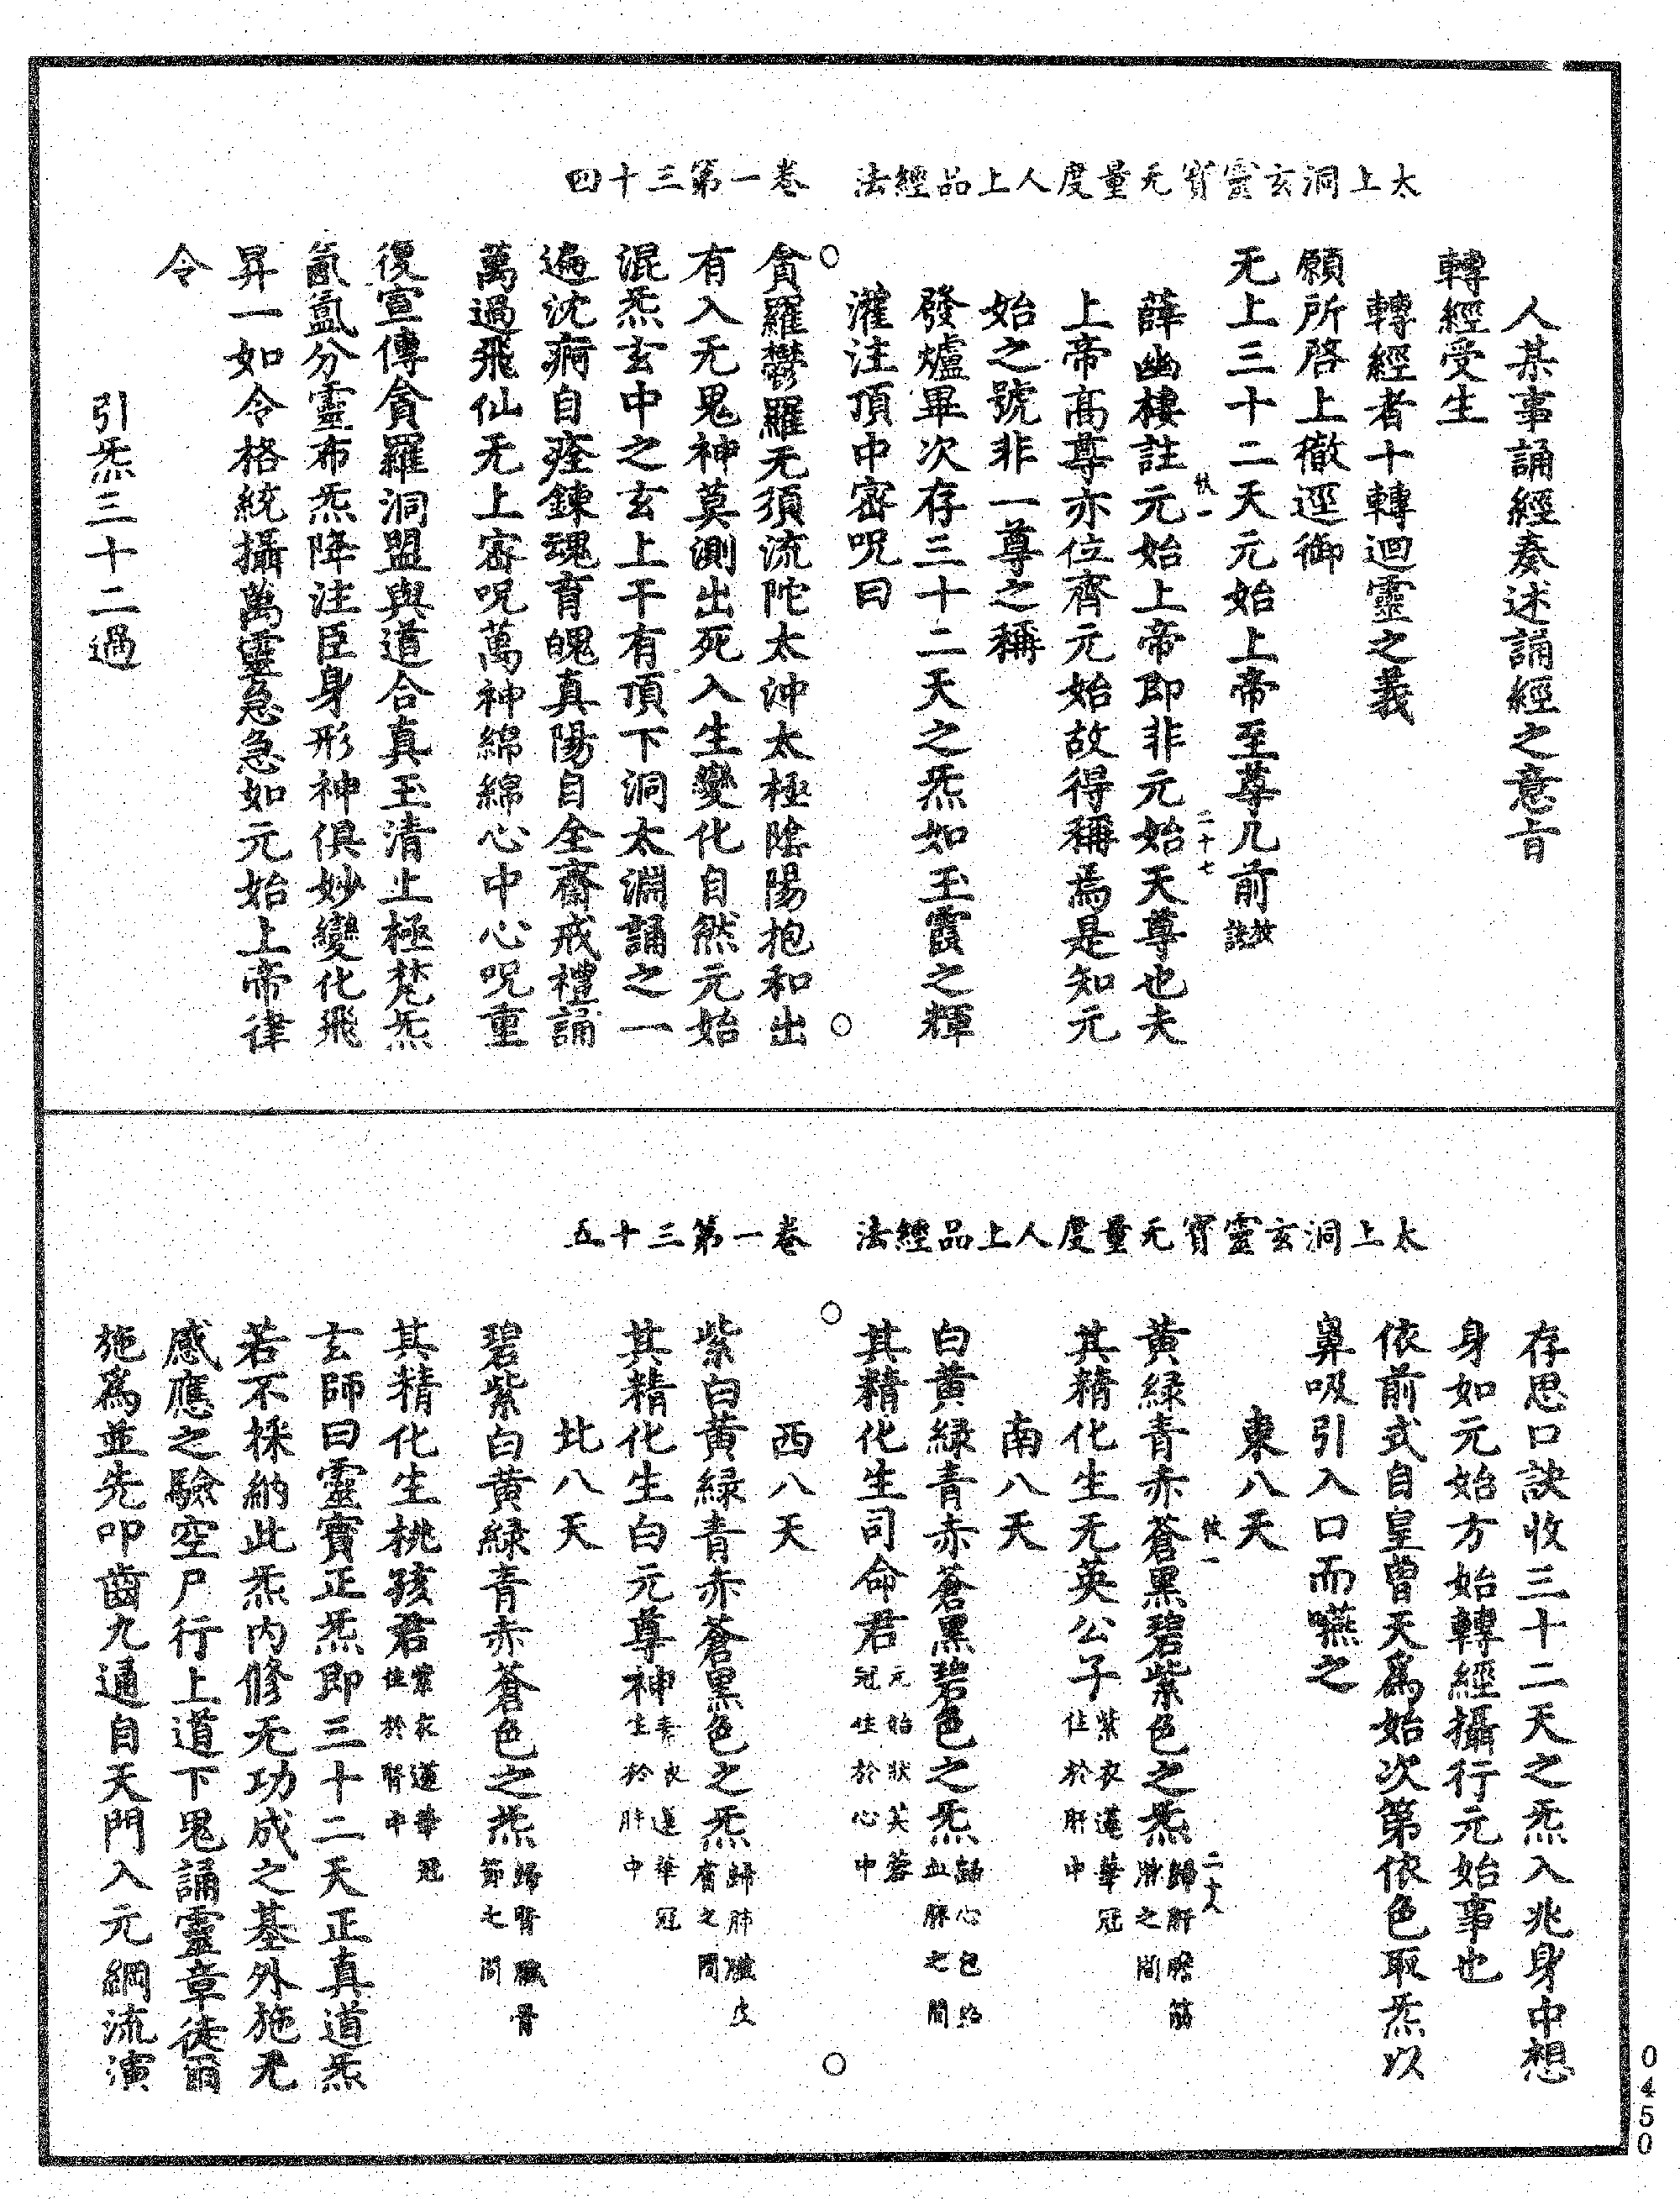 太上洞玄靈寳无量度人上品經法　卷一第三十四
人某事誦經奏述誦經之意旨
轉經受生
轉經者十轉迴靈之義
願所啓上徹逕御
无上三十二天元始上帝至尊几前
薛幽棲註元始上帝即非元始天尊也夫
上帝高尊亦位齊元始故得稱焉是知元
始之號非一尊之稱
發爐畢次存三十二天之炁如玉霞之輝
灌注頂中密呪曰
貪羅鬱羅无須流陀太沖太極陰陽抱和出
有入无鬼神莫測出死入生變化自然元始
混炁玄中之玄上干有頂下洞太淵誦之一
遍沈痾自痊鍊魂育魄真陽自全齋戒禮誦
萬過飛仙无上密呪萬神綿綿心中心呪重
復宣傳貪羅洞盟與道合真玉清上極梵炁
氤氳分靈布炁降注臣身形神俱妙變化飛
昇一如令格統攝萬靈急急如元始上帝律
令
引炁三十二過
太上洞玄靈寳无量度人上品經法　卷一第三十五
存思口訣收三十二天之炁入兆身中想
身如元始方始轉經攝行元始事也
依前式自皇曾天爲始次第依色取炁以
鼻吸引入口而嚥之
東八天
黄緑青赤蒼黑碧紫色之炁歸肝膽筋脉之間
其精化生无英公子紫衣蓮華冠住於肝中
南八天
白黄緑青赤蒼黑碧色之炁歸心包絡血脉之間
其精化生司命君元始狀芙蓉冠住於心中
西八天
紫白黄緑青赤蒼黑色之炁歸肺臟皮膚之間
其精化生白元尊神素衣蓮華冠生於肺中
北八天
碧紫白黄緑青赤蒼色之炁歸腎臟骨節之間
其精化生桃孩君紫衣蓮華冠住於腎中
玄師曰靈寳正炁即三十二天正真道炁
若不採納此炁内修无功成之基外施无
感應之驗空尸行上道下鬼誦靈章徒爾
施爲並先叩齒九通自天門入元綱流演
0450